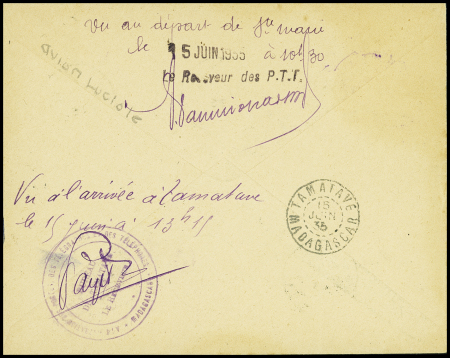 Vu au départ de Ste marie
le 15 JUIN 1935 à 10h30
Le Receveur des P.T.T.
Avion Luciole
Vu à l'arrivée à Tamatave
le 15 juin à 13h15
TAMATAVE
15
JUIN
35
MADAGASCAR
MADAGASCAR